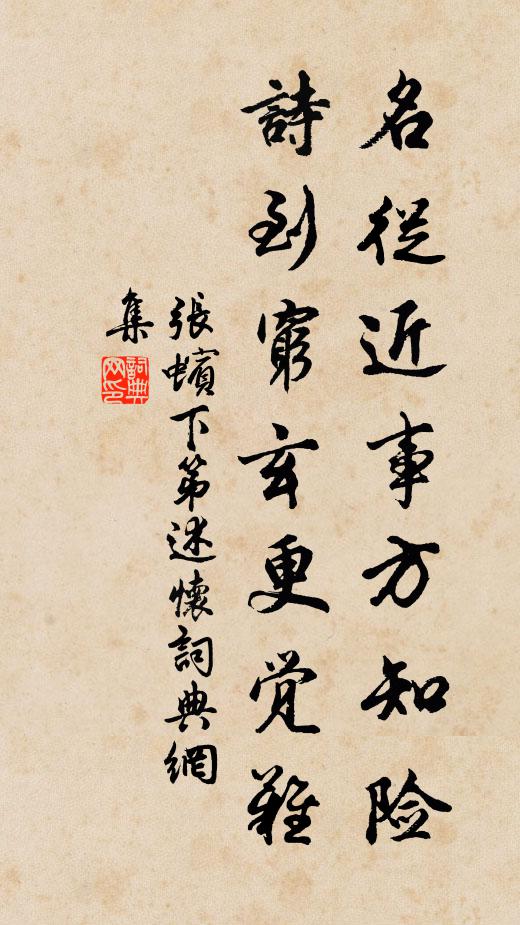 名從近事方知险
詩到窮玄更觉難
張蠙下第述懷詞典網
集
詞典
网印